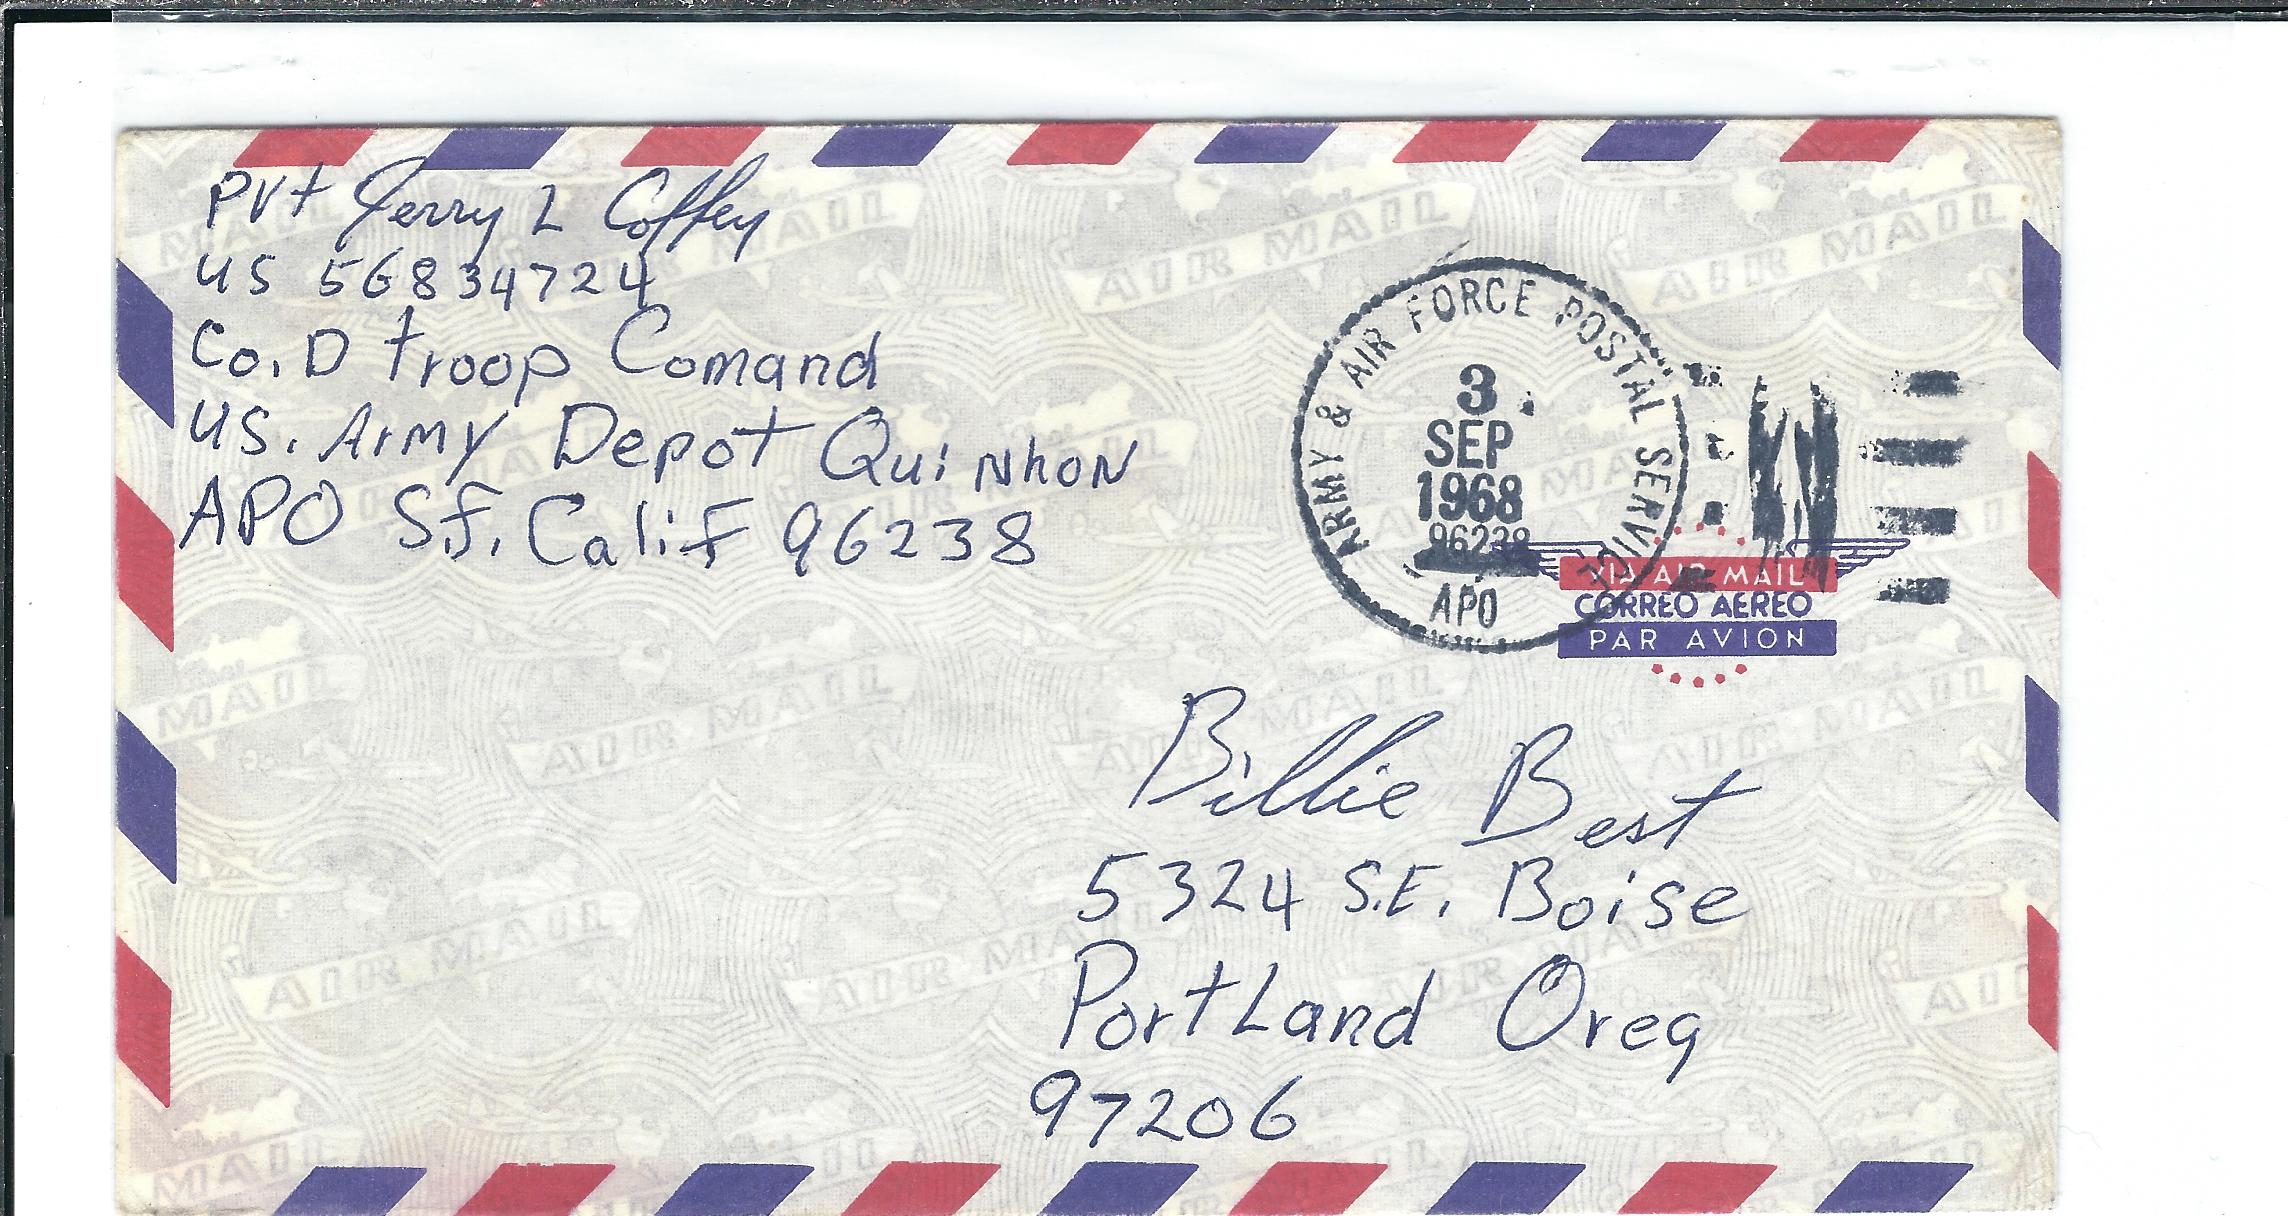 Pvt Jerry L Coffey
US 56834724
Co. D troop Comand
US. Army Depot Qui Nhon
APO S.F. Calif 96238
ARMY & AIR FORCE POSTAL SERVICE
3
SEP
1968
96238
APO
VIA AIR MAIL
CORREO AEREO
PAR AVION
Billie Best
5324 S.E. Boise
Portland Oreg
97206
AIR MAIL